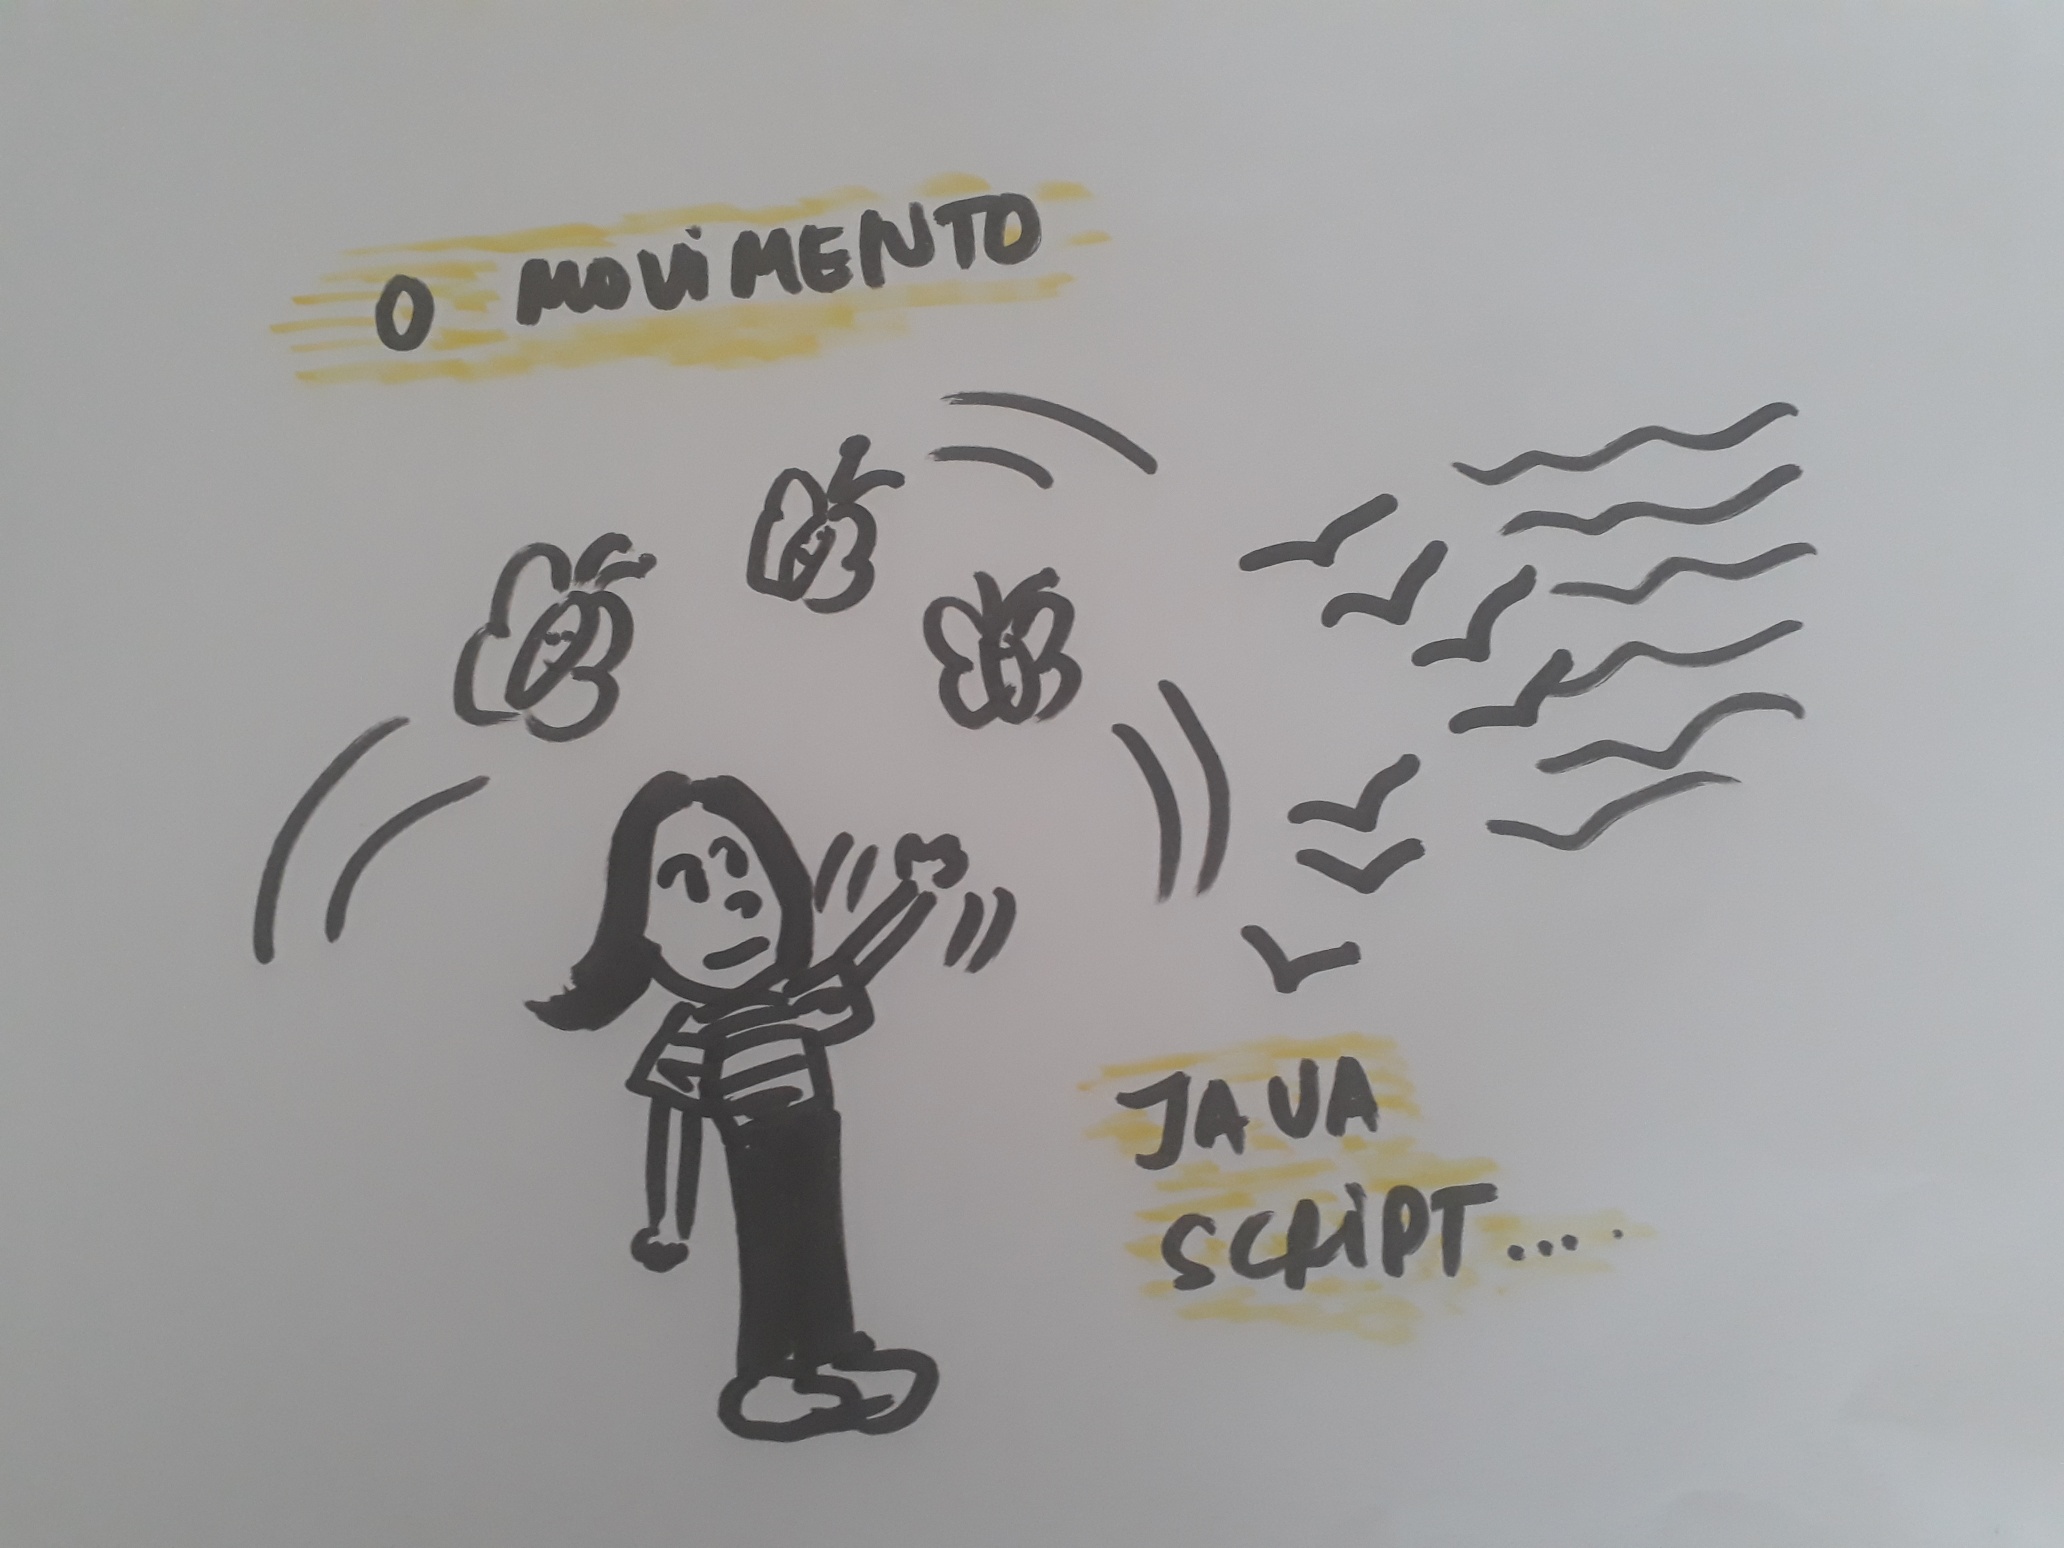 O MOViMENTO
JAVA
SCRiPT....